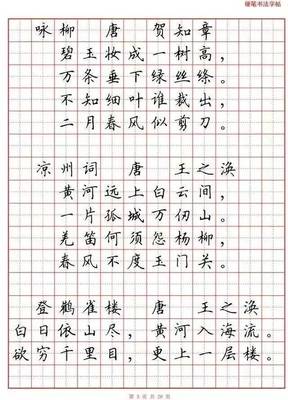 硬笔书法字帖
咏柳 唐 贺知章
碧玉妆成一树高，
万条垂下绿丝绦。
不知细叶谁裁出，
二月春风似剪刀。
凉州词 唐 王之涣
黄河远上白云间，
一片孤城万仞山。
羌笛何须怨杨柳，
春风不度玉门关。
登鹳雀楼 唐 王之涣
白日依山尽，黄河入海流。
欲穷千里目，更上一层楼。
第 3 页 共 20 页